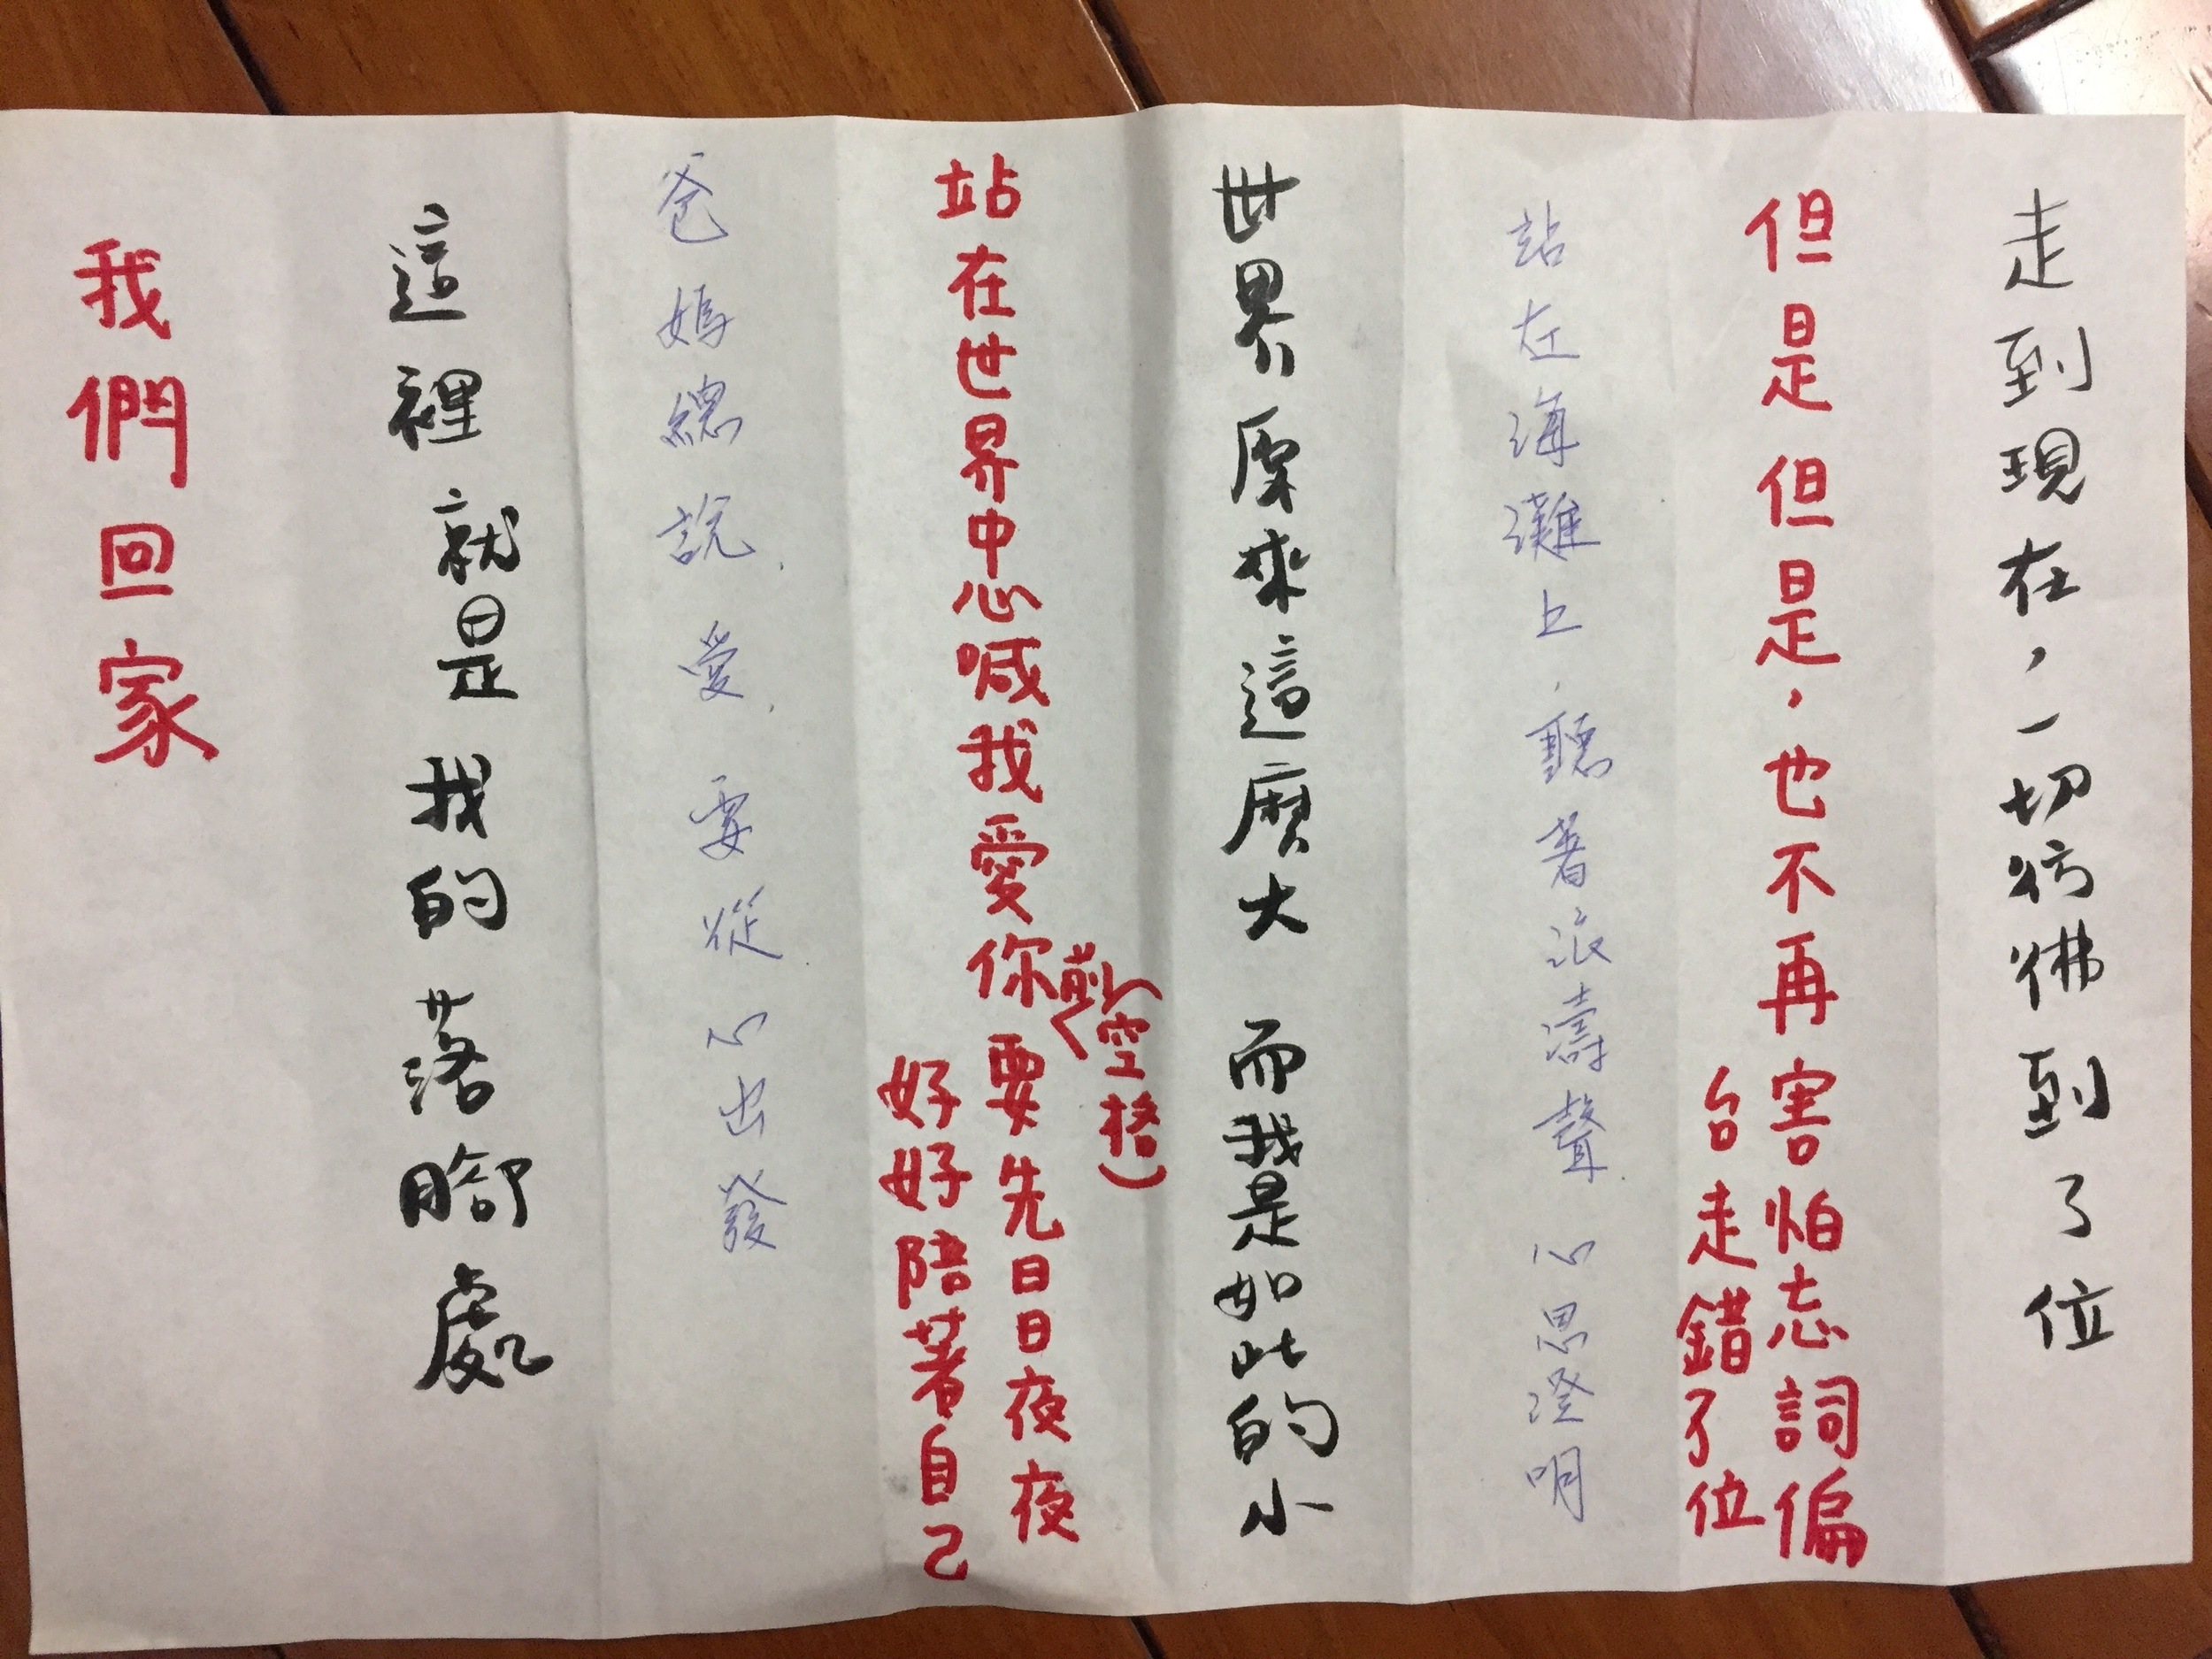 走到現在，一切彷彿到了位
但是但是，也不再害怕忘詞偏
台走錯了位
站在海灘上，聽著浪濤聲 心思澄明
世界原來這麼大 而我是如此的小
站在世界中心喊我愛你 要先日日夜夜
前（空格）
好好陪著自己
爸媽總說，愛，要從心出發
這裡就是我的落腳處
我們回家